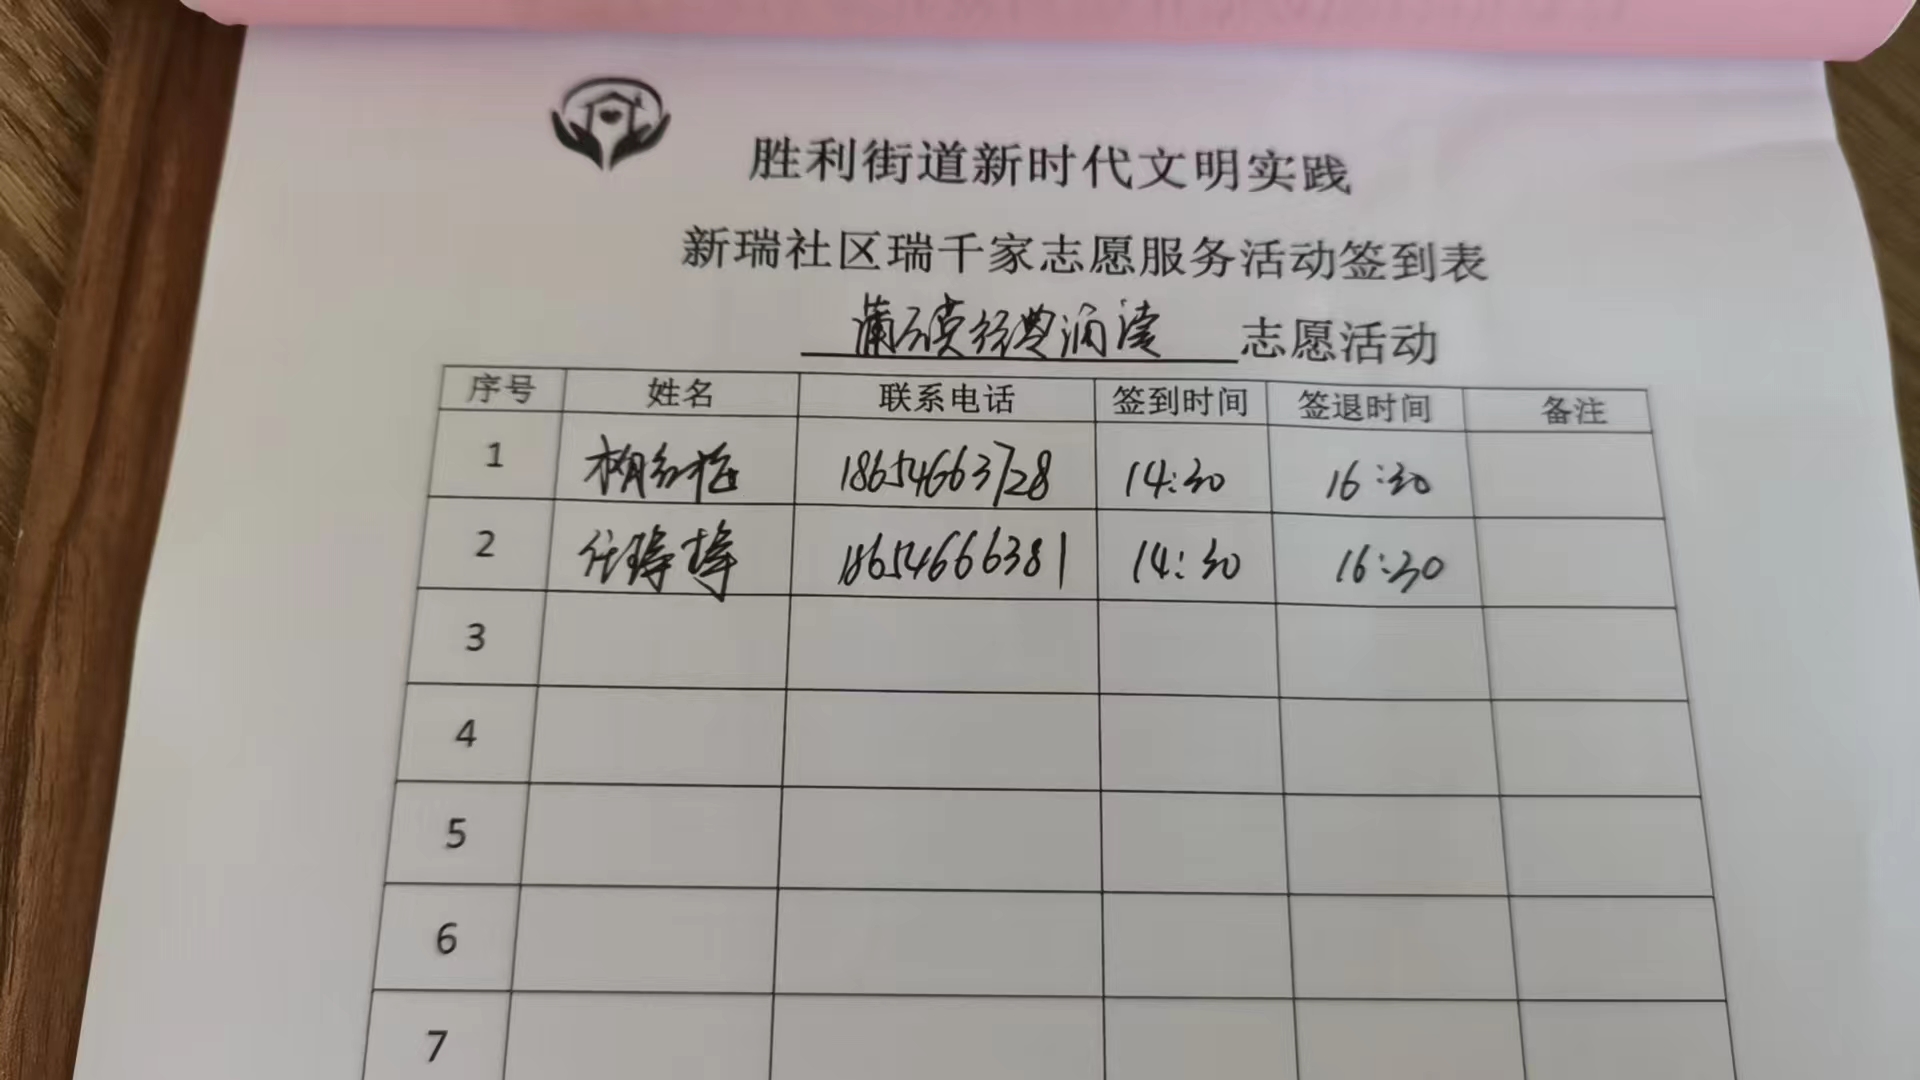 胜利街道新时代文明实践
新瑞社区瑞千家志愿服务活动签到表
诵读 志愿活动
序号 姓名 联系电话 签到时间 签退时间 备注
1 18654663728 14:30 16:30
2 任 18654666381 14:30 16:30
3
4
5
6
7